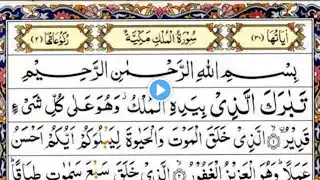 اٰيَاتُهَا (٣٠) سُوْرَةُ الْمُلْكِ مَكِّيَّةٌ رُكُوْعَاتُهَا (٢)
بِسْمِ اللهِ الرَّحْمٰنِ الرَّحِيْمِ
تَبٰرَكَ الَّذِيْ بِيَدِهِ الْمُلْكُ وَهُوَ عَلٰى كُلِّ شَيْءٍ
قَدِيْرُ ۙ الَّذِيْ خَلَقَ الْمَوْتَ وَالْحَيٰوةَ لِيَبْلُوَكُمْ اَيُّكُمْ اَحْسَنُ
عَمَلًا وَهُوَ الْعَزِيْزُ الْغَفُوْرُ ۙ الَّذِيْ خَلَقَ سَبْعَ سَمٰوٰتٍ طِبَاقًا